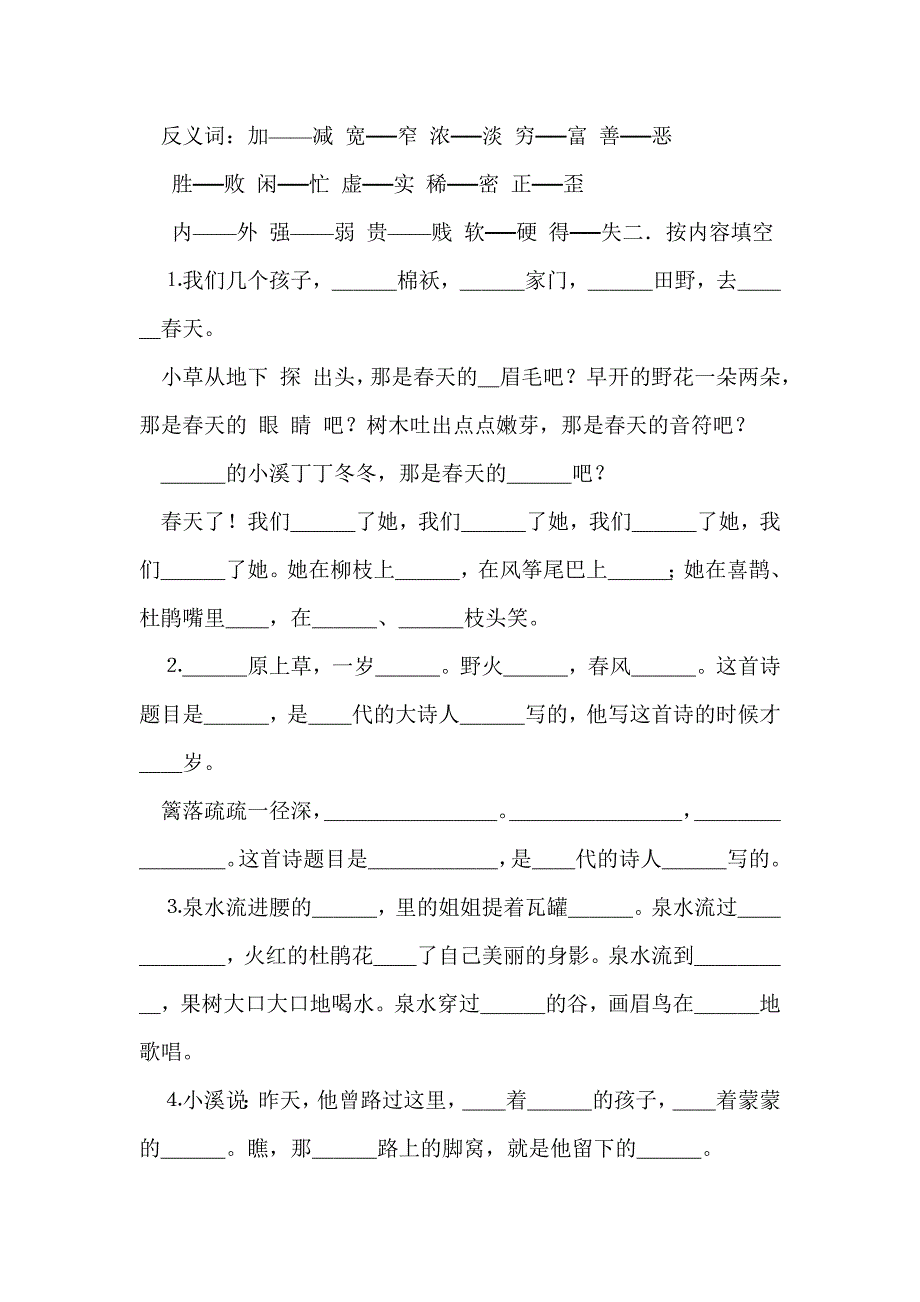 反义词：加——减 宽——窄 浓——淡 穷——富 善——恶
胜——败 闲——忙 虚——实 稀——密 正——歪
内——外 强——弱 贵——贱 软——硬 得——失二．按内容填空
1.我们几个孩子，______棉袄，______家门，______田野，去____
__春天。
小草从地下 探 出头，那是春天的__眉毛吧？早开的野花一朵两朵，
那是春天的 眼 睛 吧？树木吐出点点嫩芽，那是春天的音符吧？
______的小溪丁丁冬冬，那是春天的______吧？
春天了！我们______了她，我们______了她，我们______了她，我
们______了她。她在柳枝上______，在风筝尾巴上______；她在喜鹊、
杜鹃嘴里____，在______、______枝头笑。
2.______原上草，一岁______。野火______，春风______。这首诗
题目是______，是____代的大诗人______写的，他写这首诗的时候才
____岁。
篱落疏疏一径深，________________。________________，________
________。这首诗题目是____________，是____代的诗人______写的。
3.泉水流进腰的______，里的姐姐提着瓦罐______。泉水流过____
________，火红的杜鹃花____了自己美丽的身影。泉水流到________
__，果树大口大口地喝水。泉水穿过______的谷，画眉鸟在______地
歌唱。
4.小溪说：昨天，他曾路过这里，____着______的孩子，____着蒙蒙
的______。瞧，那______路上的脚窝，就是他留下的______。